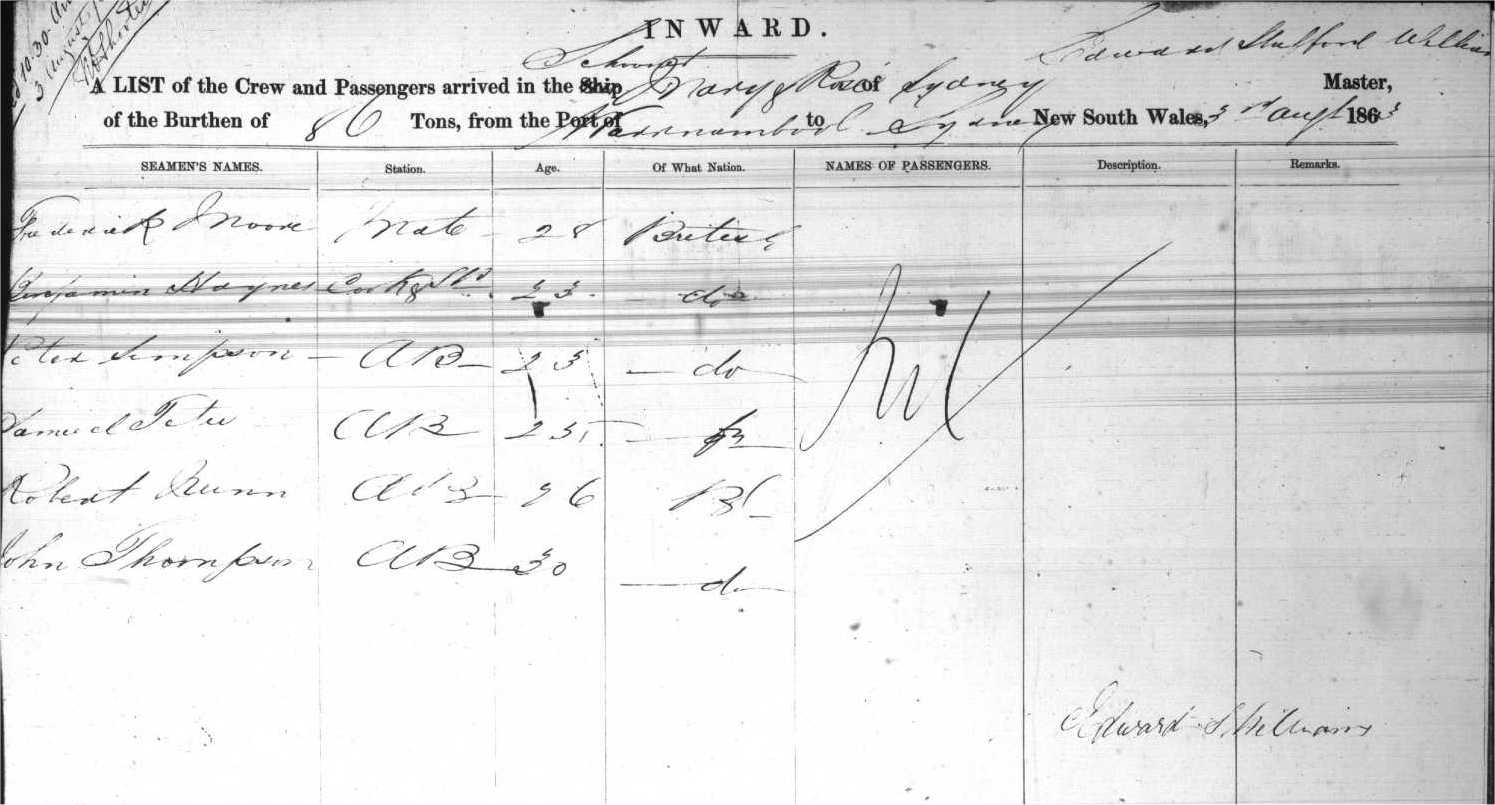 10.30
3 August
INWARD.
Schooner Edward Williams
A LIST of the Crew and Passengers arrived in the Ship Mary & Rose of Sydney Master,
of the Burthen of 86 Tons, from the Port of Warrnambool to Sydney New South Wales, 3rd Augt 1863
SEAMEN'S NAMES. Station. Age. Of What Nation. NAMES OF PASSENGERS. Description. Remarks.
Frederick Moore Mate 28 British
Benjamin Haynes Cook & Std 23 do
Peter Simpson AB 23 do
nil
Samuel AB 25
Robert AB 26
John Thompson AB 30 do
Edward S Williams